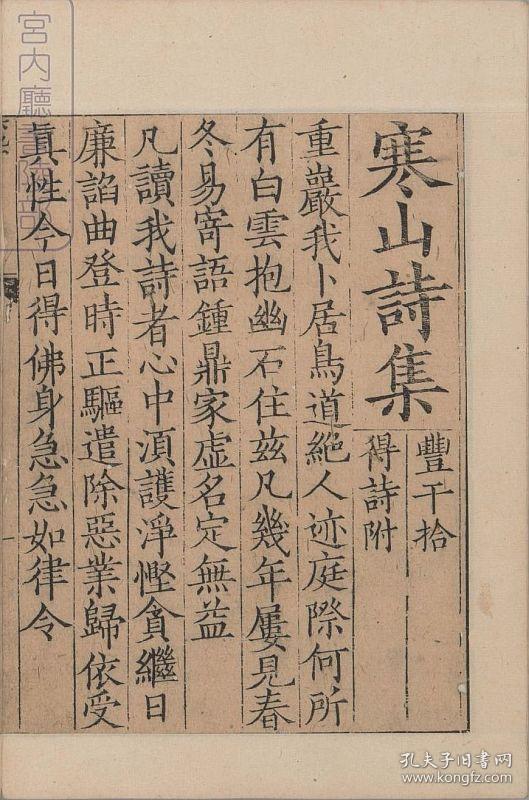 寒山詩集
豐干拾
得詩附
重巖我卜居鳥道絕人迹庭際何所
有白雲抱幽石住茲凡幾年屢見春
冬易寄語鍾鼎家虛名定無益
凡讀我詩者心中須護淨慳貪繼日
廉諂曲登時正驅遣除惡業歸依受
真性今日得佛身急急如律令
宮內廳書陵部
孔夫子旧书网
www.kongfz.com